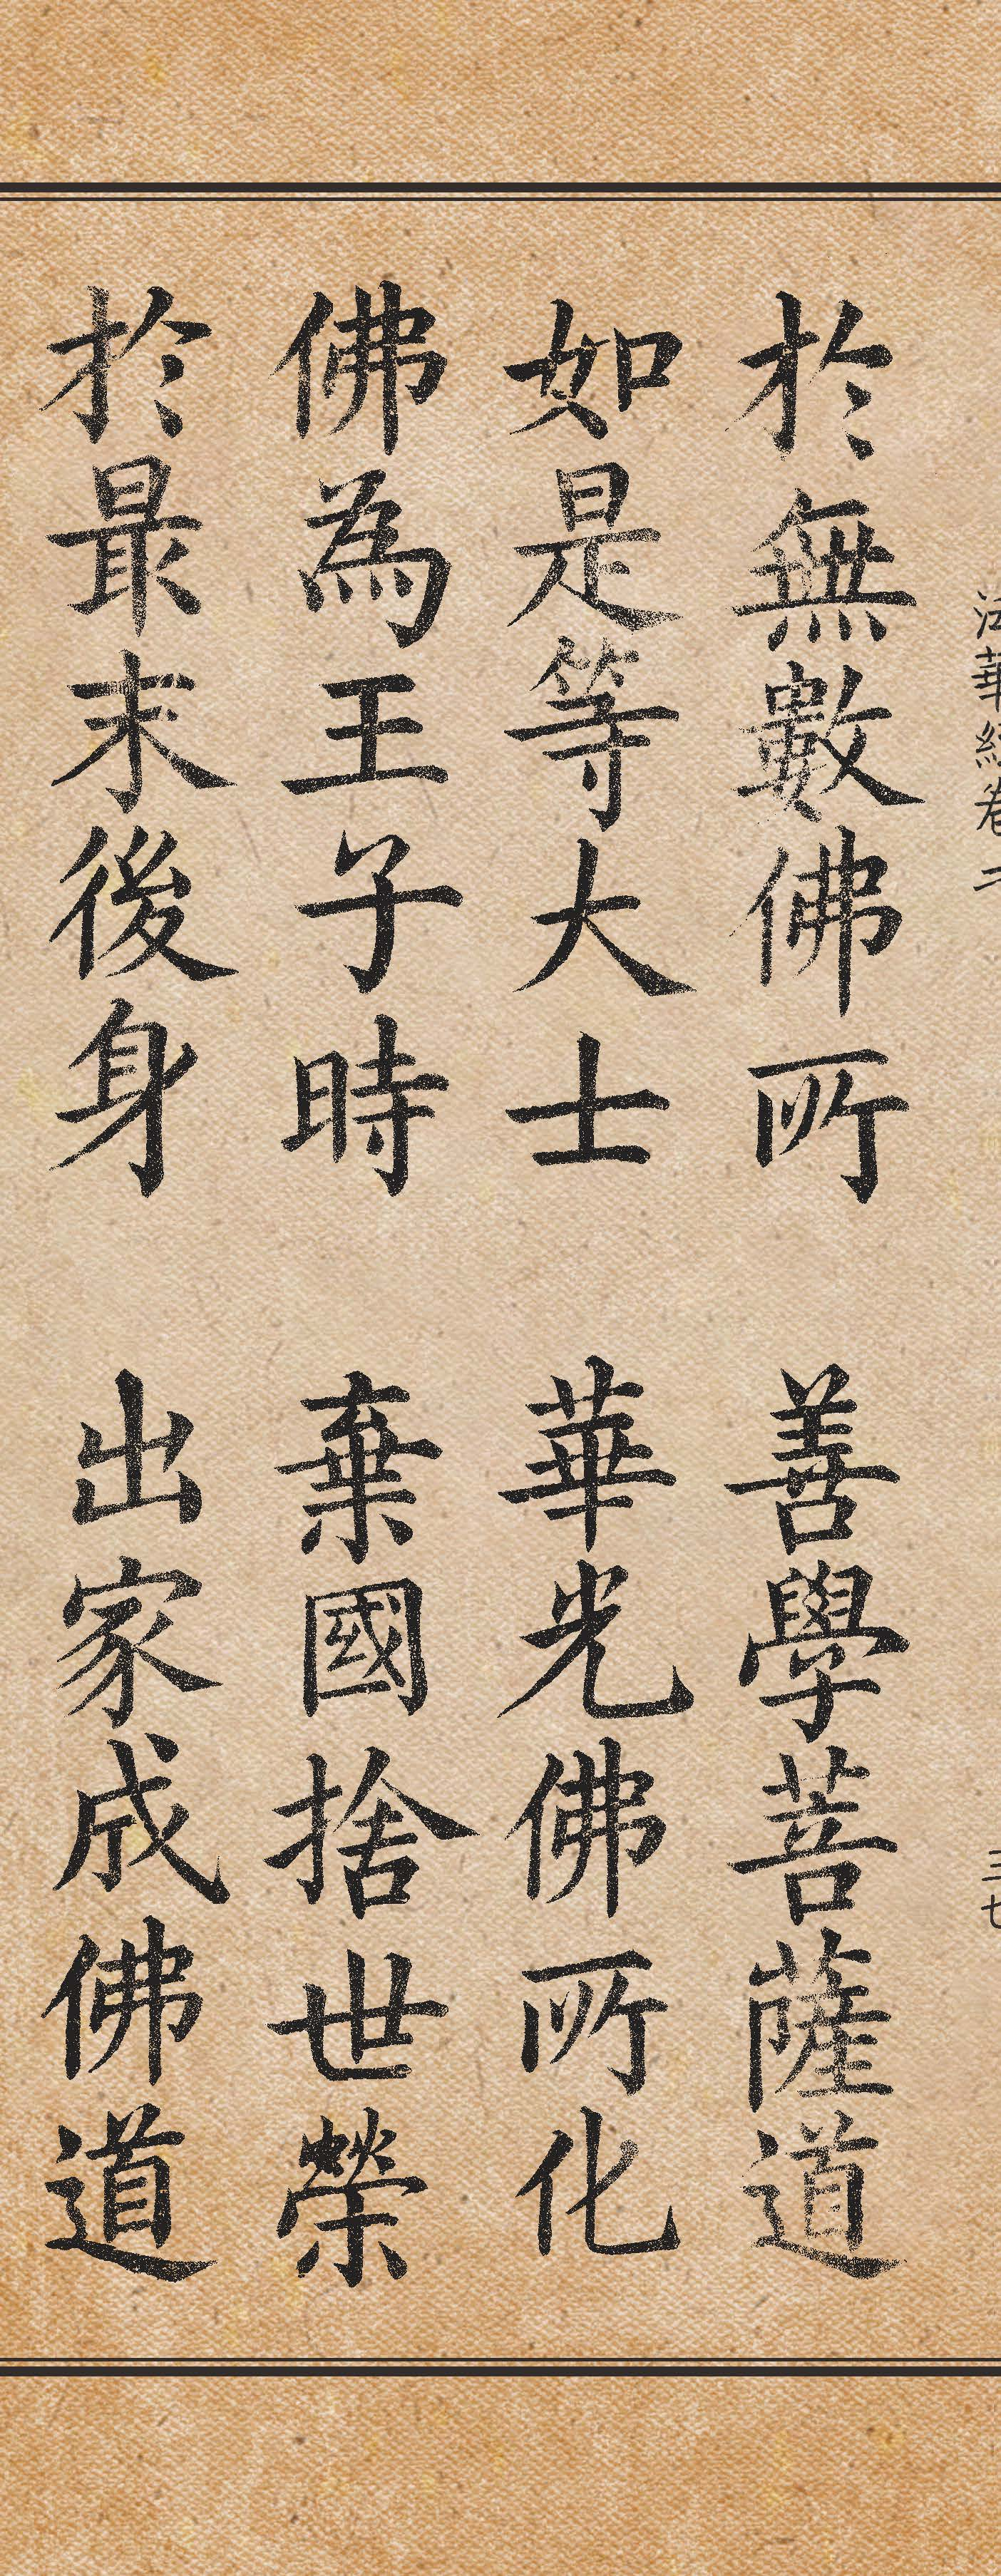 法華經卷二
三七
於無數佛所 善學菩薩道
如是等大士 華光佛所化
佛為王子時 棄國捨世榮
於最末後身 出家成佛道